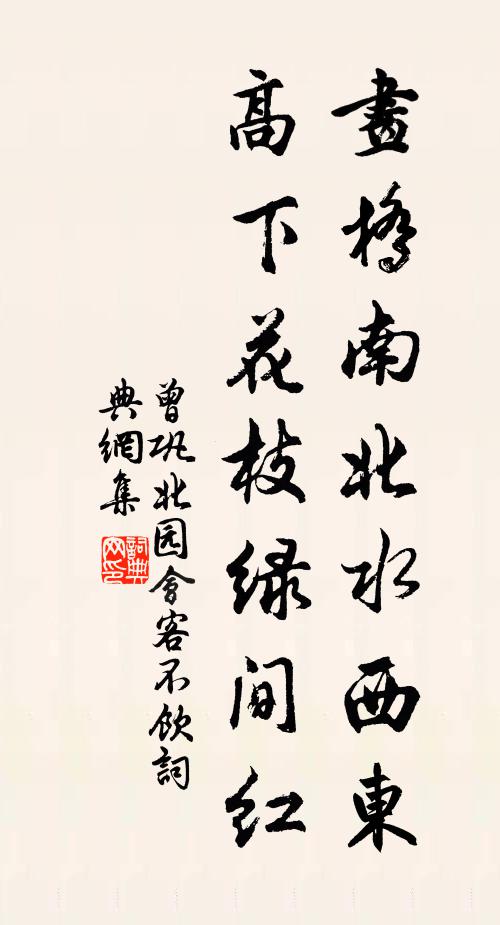 畫橋南北水西東
高下花枝绿间紅
曾巩北园會客不飲詞
典網集
詞典
网印